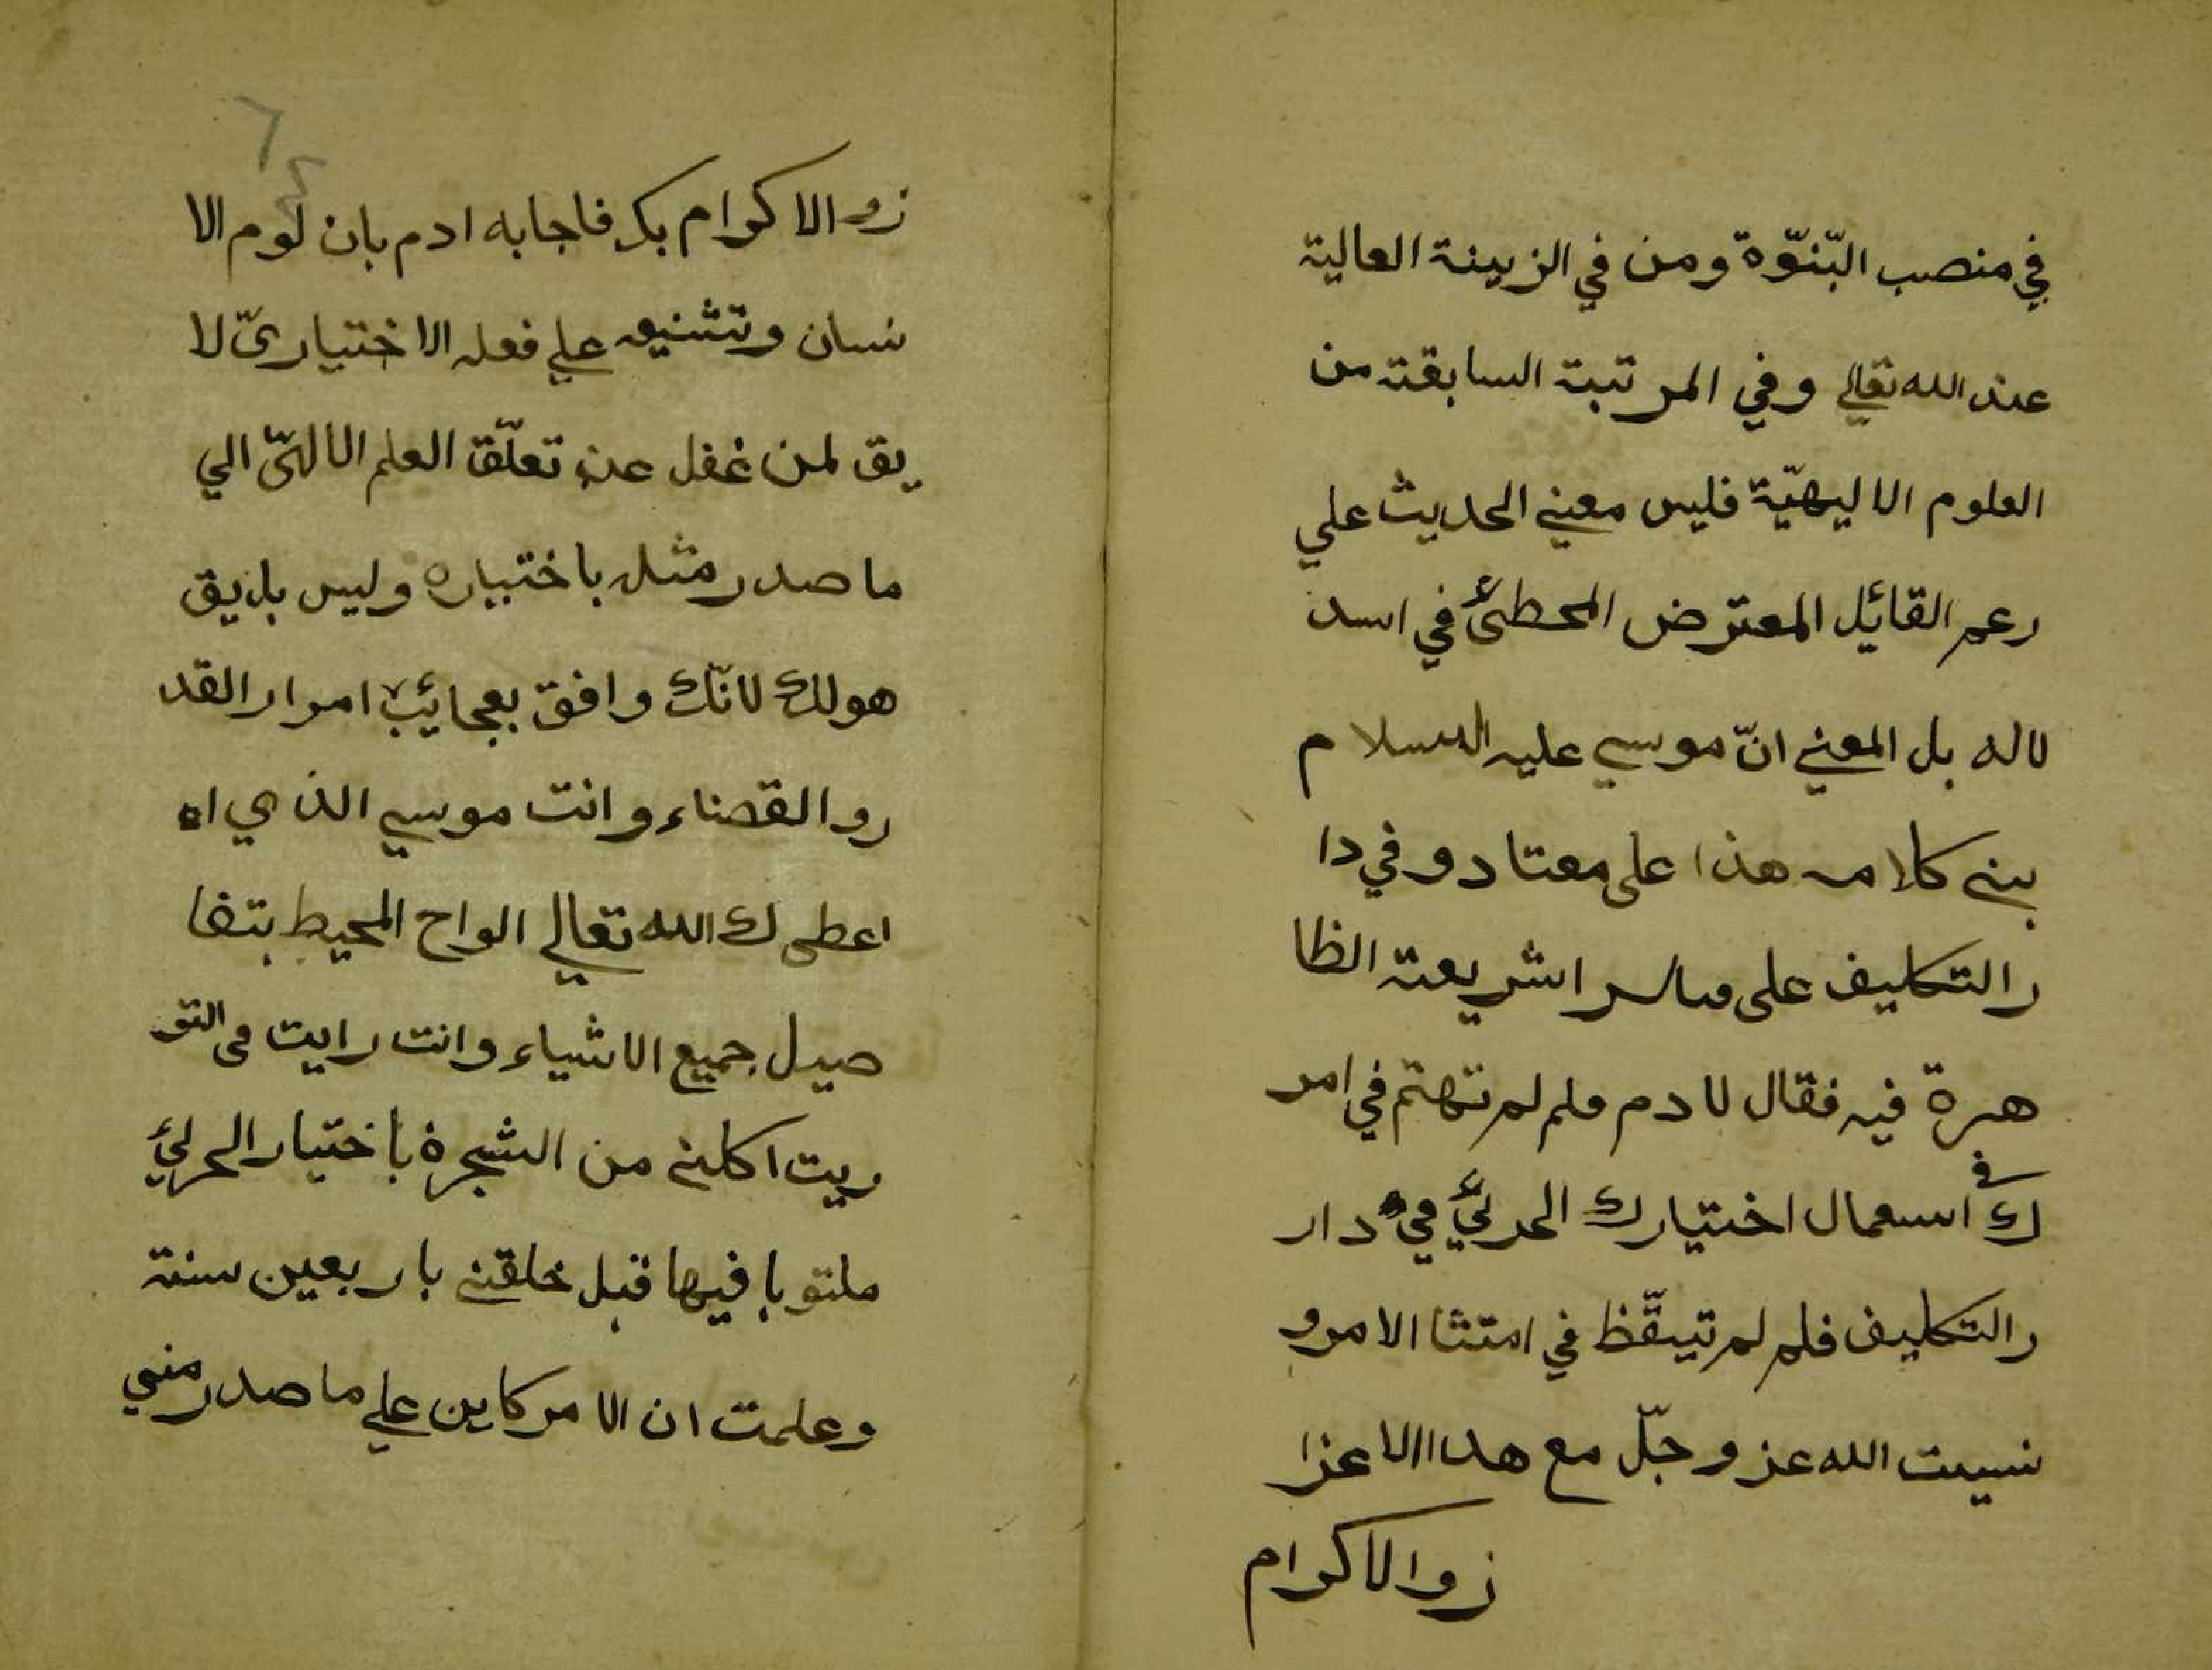 في منصب البّنوّة ومن في الزبينة العالية
عند الله تعالي وفي المرتبة السابقة من
العلوم الاليهيّة فليس معني الحديث علي
رعم القائل المعترض المحطئ في اسد
لاله بل المعني انّ موسي عليه السلام
بني كلامه هذا على معتاد وفي دا
ر التكليف على اشريعة الظا
هرة فيه فقال لادم ملم لم تهتم في امر
ك في اسعمال اختيارك الحرلئ في دار
ر التكليف فلم لم تيقّظ في امتثا الامر و
نسيت الله عز وجلّ مع هدا الاعزا
زو الاكرام
٦
زو الاكرام بك فاجابه ادم بان لوم الا
نسان وتشنيعه علي فعله الاختياريّ لا
يق لمن غفل عن تعلّق العلم الالهيّ الي
ما صدر مثله باختياره وليس بلايق
هو لك لانّك وافق بعجائب امرار القد
رو القضاء وانت موسي الذي اه
اعطى لك الله تعالي الواح المحيط بتفا
صيل جميع الاشياء وانت رايت في التو
ريت اكلني من الشجرة باختيار الحرلئ
ملتوبا فيها قبل خلقني باربعين سنة
وعلمت ان الامر كاين علي ما صدر مني